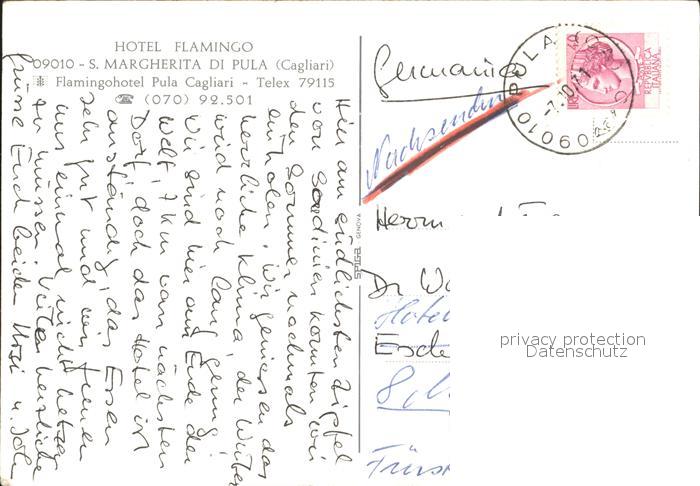 HOTEL FLAMINGO
09010 - S. MARGHERITA DI PULA (Cagliari)
Flamingohotel Pula Cagliari - Telex 79115
☎ (070) 92.501
Hier am südlichsten Zipfel
von Sardinien konnten wir
den Sommer nochmals
einholen. Wir geniessen das
herrliche Klima, der Winter
wird noch lang genug.
Wir sind hier am Ende der
Welt, 7 km vom nächsten
Dorf, doch das Hotel ist
anständig, das Essen
sehr gut und wir freuen
uns einmal nicht hetzen
zu müssen. Viele herzliche
Grüsse Euch beiden
SPIGA GENOVA
Germania
Nachsenden
PULA
09010
REPUBBLICA
ITALIANA
Herrn
Dr Wo
Hotel
Esch
Fürst
privacy protection
Datenschutz